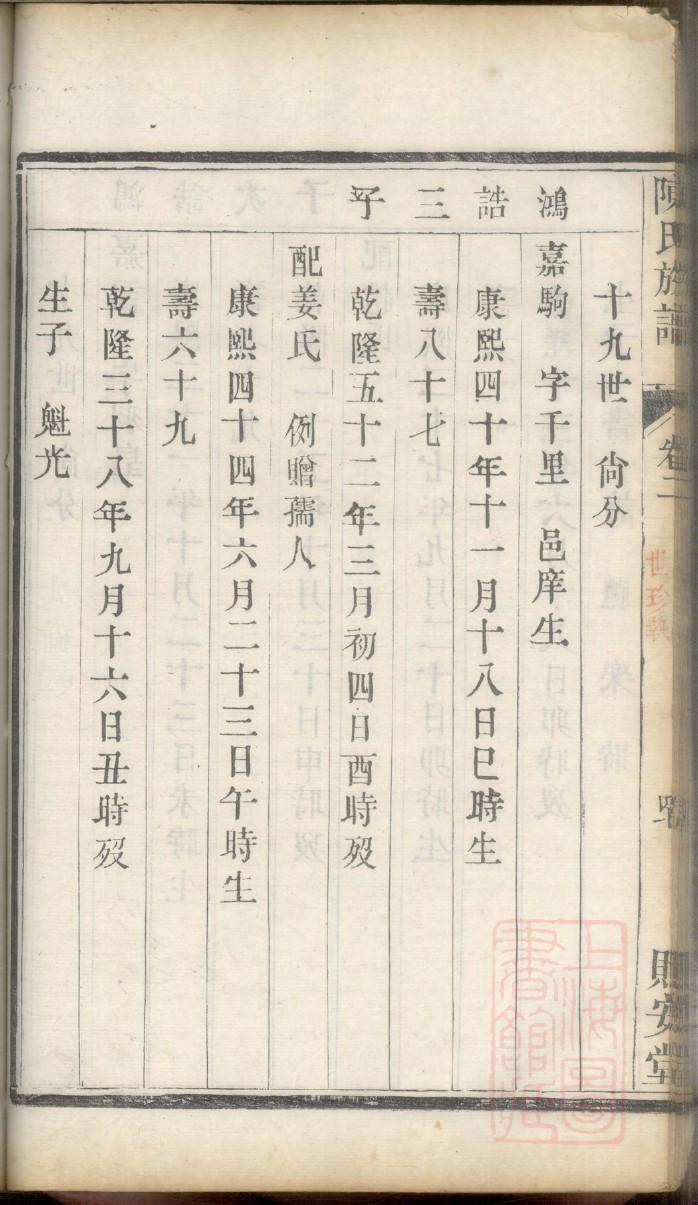 陳氏族譜
卷二
世珍執
貽安堂
十九世 尙分
鴻嘉駒 字千里 邑庠生
誥 康熙四十年十一月十八日巳時生
三 壽八十七
子 乾隆五十二年三月初四日酉時歿
配姜氏 例贈孺人
康熙四十四年六月二十三日午時生
壽六十九
乾隆三十八年九月十六日丑時歿
生子 魁光
上海圖書館藏